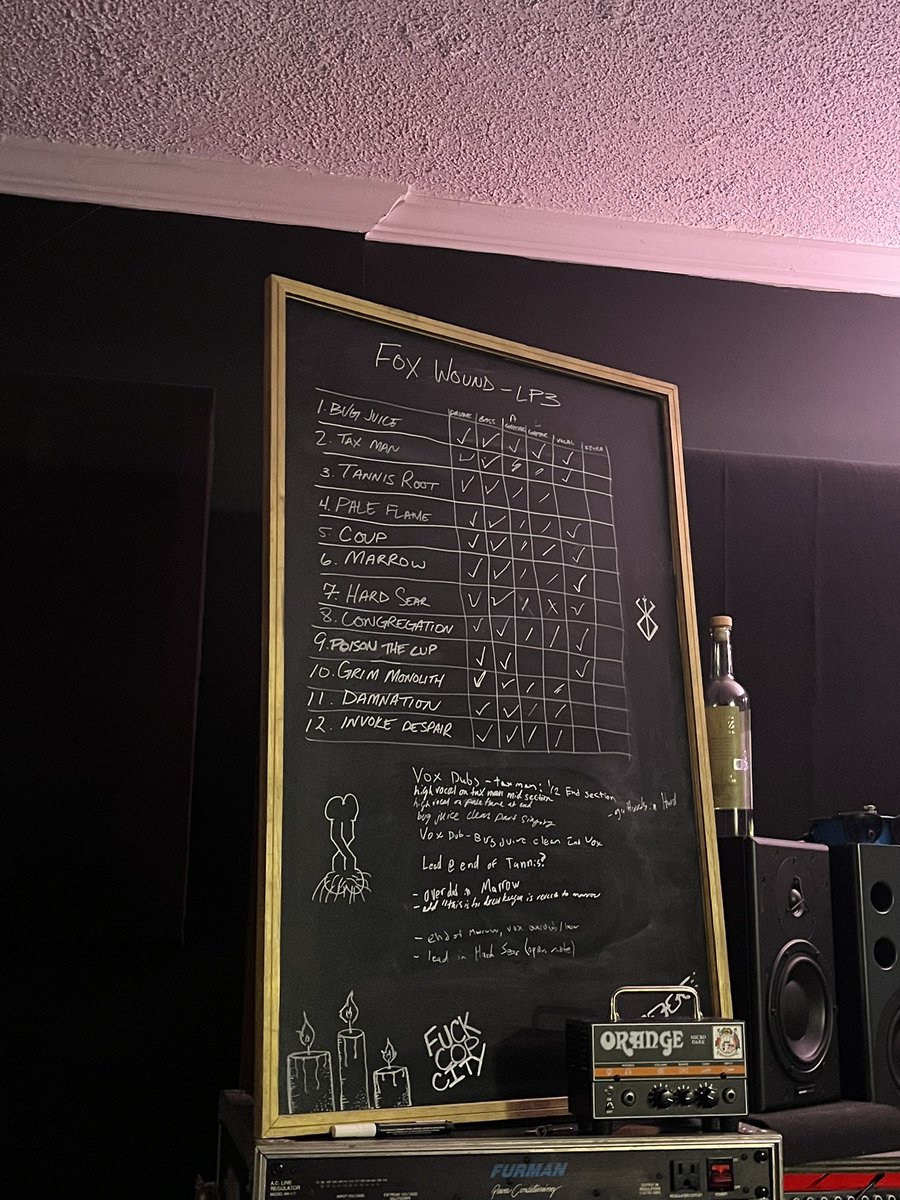 FOX WOUND - LP3
DRUMS BASS GUITAR GUITAR VOCAL EXTRA
1. BUG JUICE ✓ ✓ ✓ ✓ ✓
2. TAX MAN ✓ ✓ ✓
3. TANNIS ROOT ✓ ✓ / /
4. PALE FLAME ✓ ✓ / / ✓
5. COUP ✓ ✓ / / ✓
6. MARROW ✓ ✓ / / ✓
7. HARD SEAR ✓ ✓ / X ✓
8. CONGREGATION ✓ ✓ / / ✓
9. POISON THE CUP ✓ ✓ ✓
10. GRIM MONOLITH ✓ ✓ / /
11. DAMNATION ✓ ✓ / /
12. INVOKE DESPAIR ✓ ✓ / /
VOX Dubs - tax man: 1/2 End section
high vocal on tax man mid section
high vocal on pale flame at end
bug juice clean part singing
VOX Dub - Bug Juice clean Vox
Lead @ end of Tannis?
- overdub in Marrow
- add "this is for to marrow
- end of marrow, vox
- lead in Hard Sear (open note)
FUCK
COP
CITY
ORANGE
MICRO
DARK
FURMAN
Power Conditioning
A.C. LINE
REGULATOR
INPUT VOLTAGE